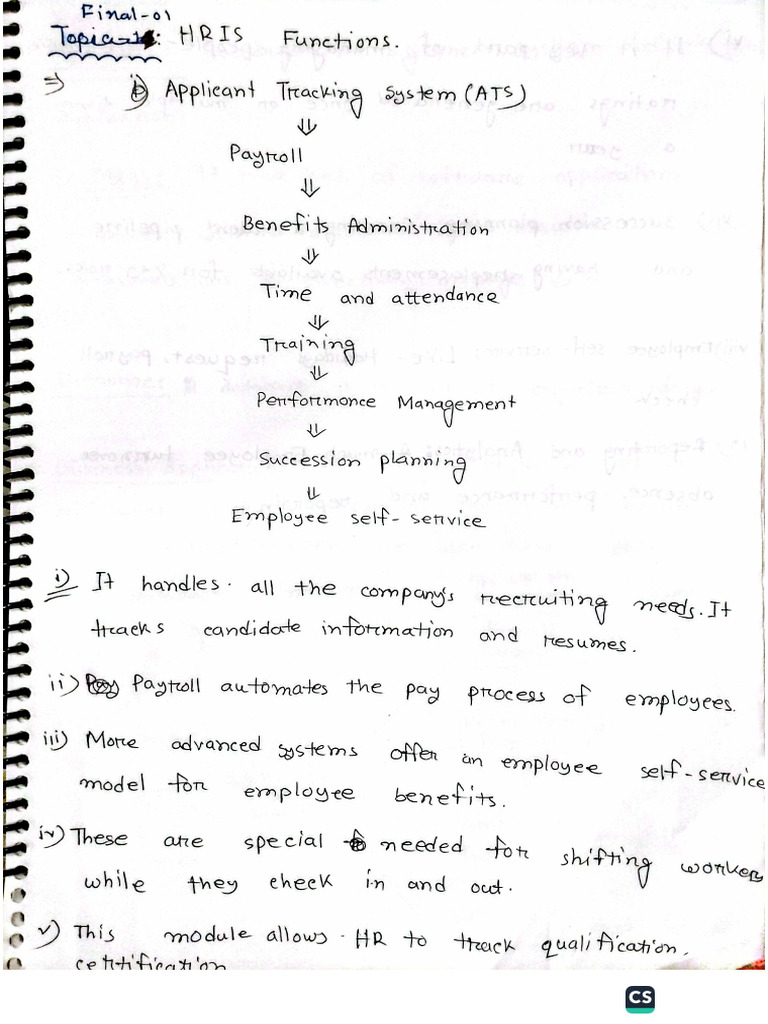 Final-01
Topic-1: HRIS Functions.
⇒ i) Applicant Tracking System (ATS)
⇓
Payroll
⇓
Benefits Administration
⇓
Time and attendance
⇓
Training
⇓
Performance Management
⇓
Succession planning
⇓
Employee self-service
i) It handles all the company's recruiting needs. It
tracks candidate information and resumes.
ii) Payroll automates the pay process of employees.
iii) More advanced systems offer an employee self-service
model for employee benefits.
iv) These are special needed for shifting workers
while they check in and out.
v) This module allows HR to track qualification.
certification
CS